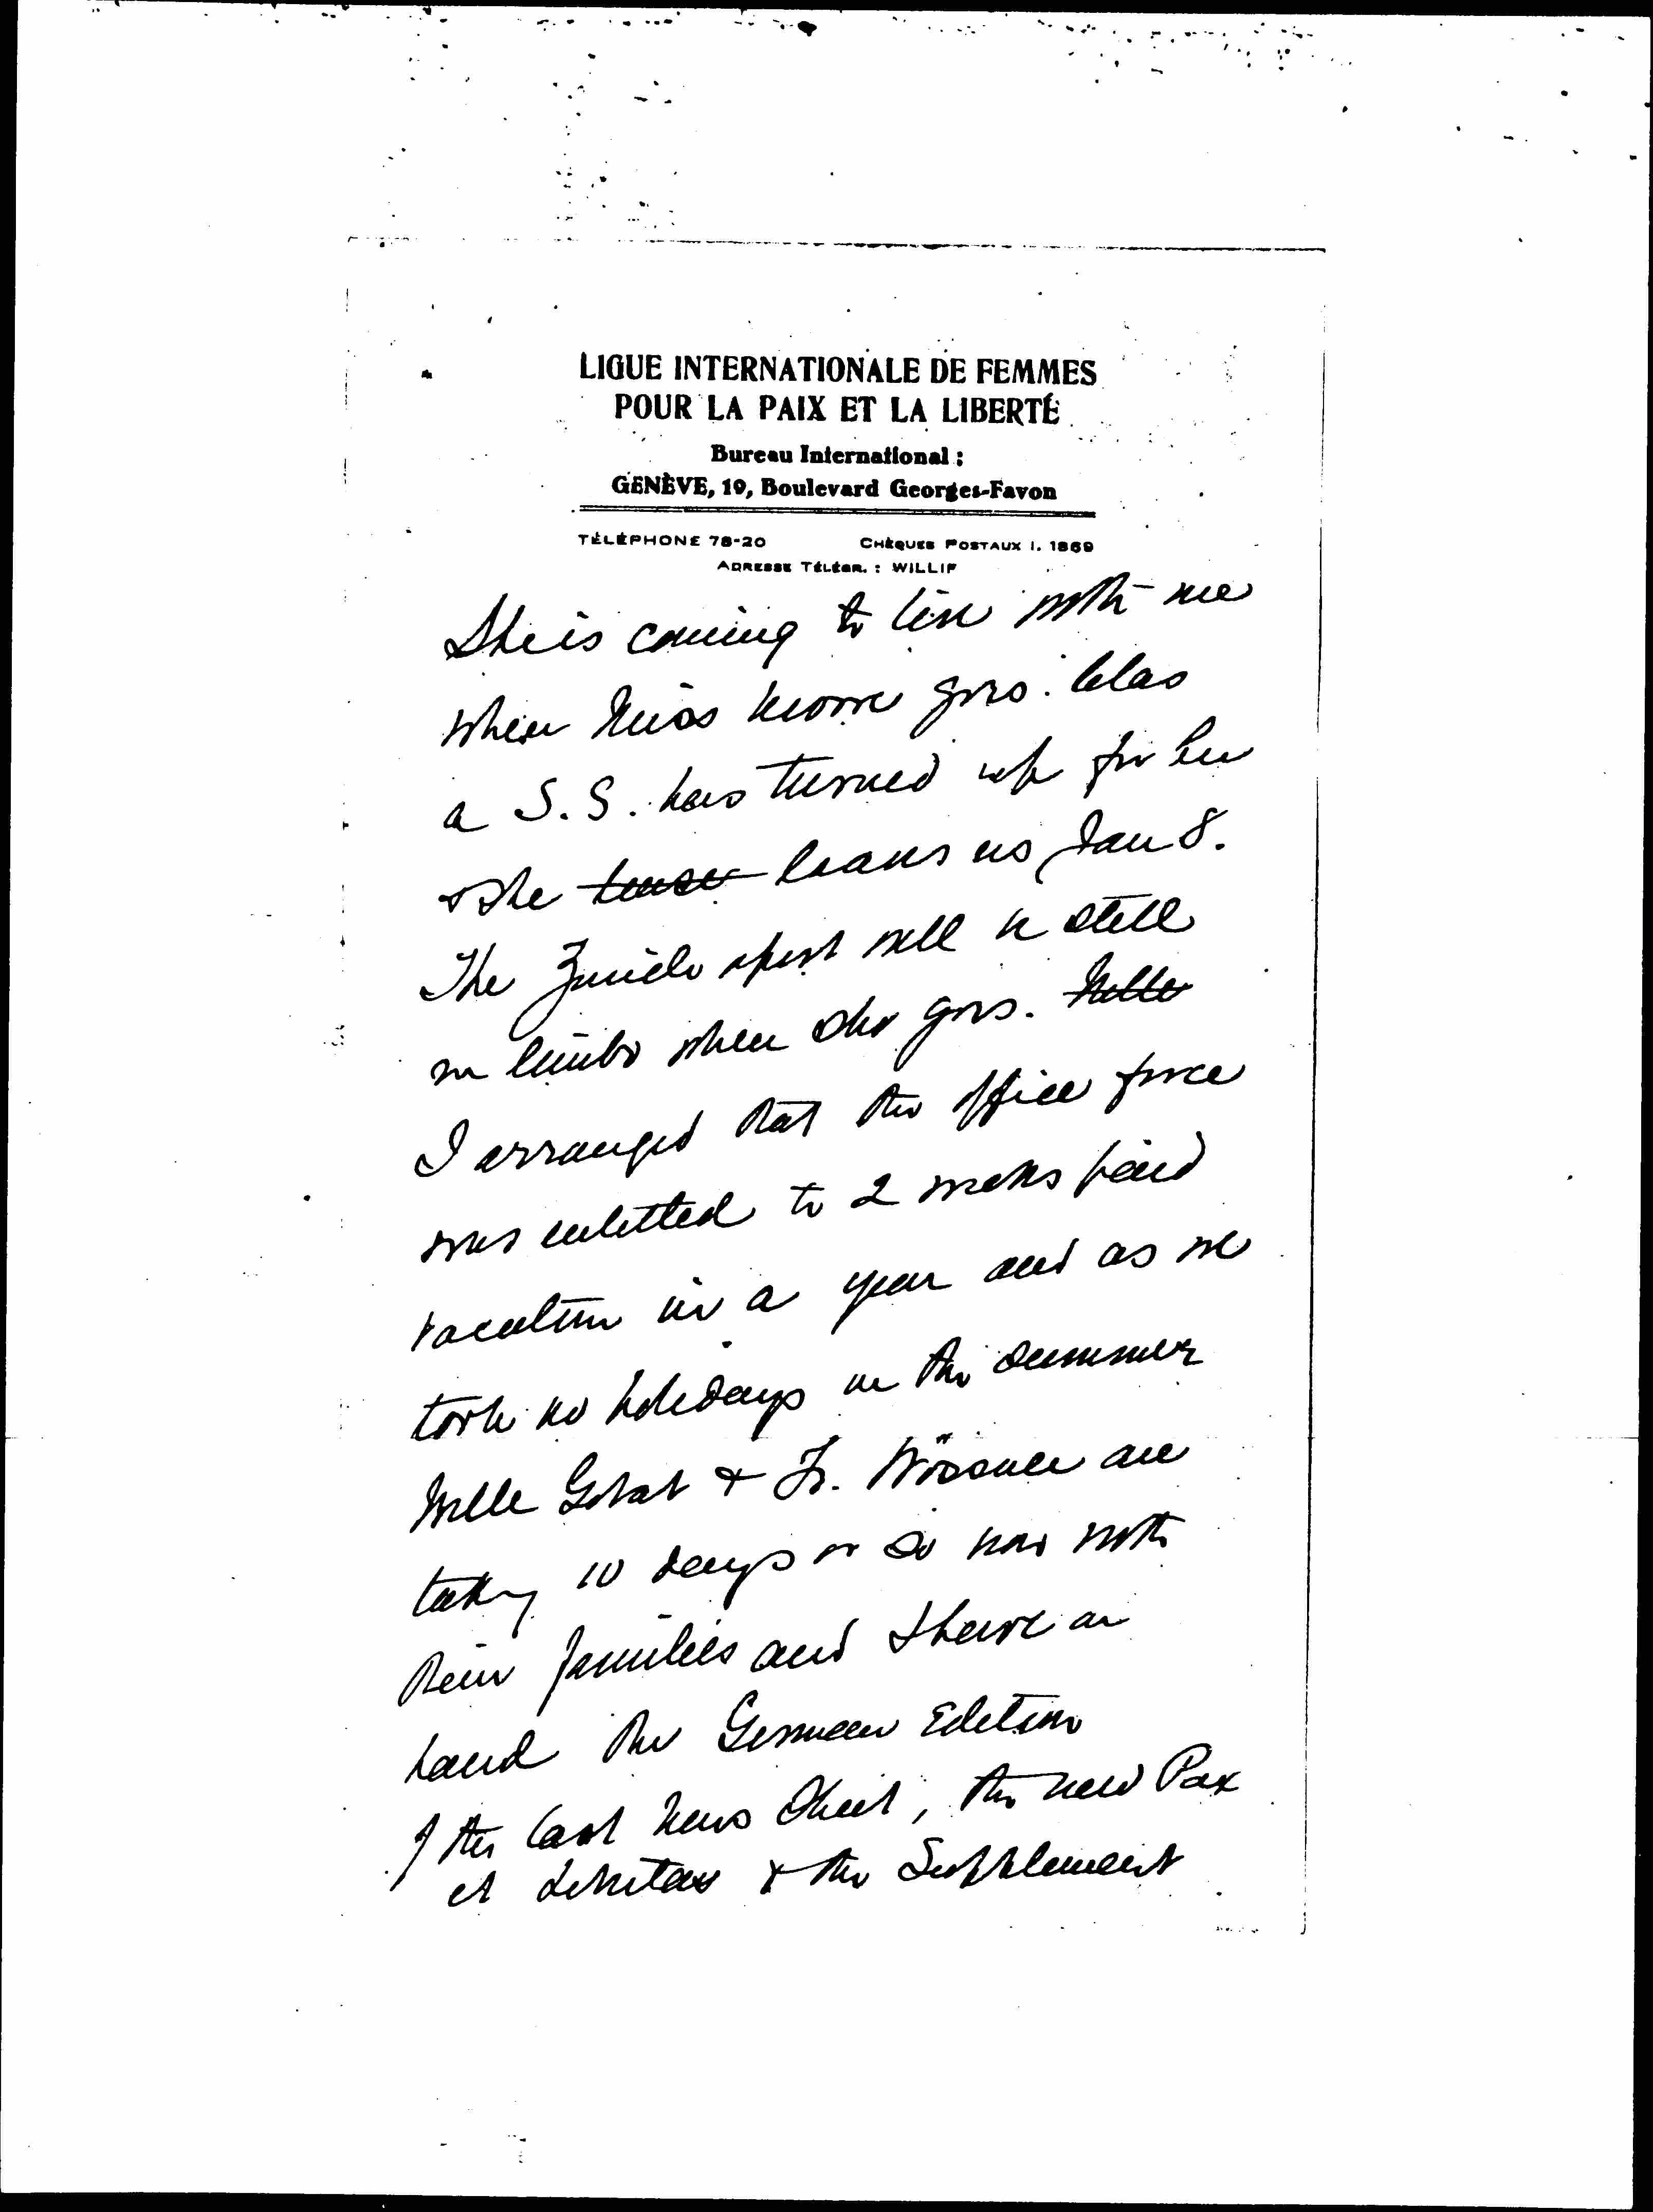 LIGUE INTERNATIONALE DE FEMMES
POUR LA PAIX ET LA LIBERTÉ
Bureau International :
GENÈVE, 19, Boulevard Georges-Favon
TÉLÉPHONE 78-20 CHÈQUES POSTAUX I. 1869
ADRESSE TÉLÉGR. : WILLIF
She is coming to live with me
when Miss Moore goes. Alas
a S.S. has turned up for her
& she leaves us Jan 8.
The Zurich report will be still
in limbo when she goes. Mlle
I arranged that the office force
was entitled to 2 weeks paid
vacation in a year and as we
took no holidays in the summer
Mlle Gobat & Fr. Wössner are
taking 10 days or so now with
their families and I have on
hand the German Edition
of the last News Sheet, the new Pax
et Libertas & the Supplement